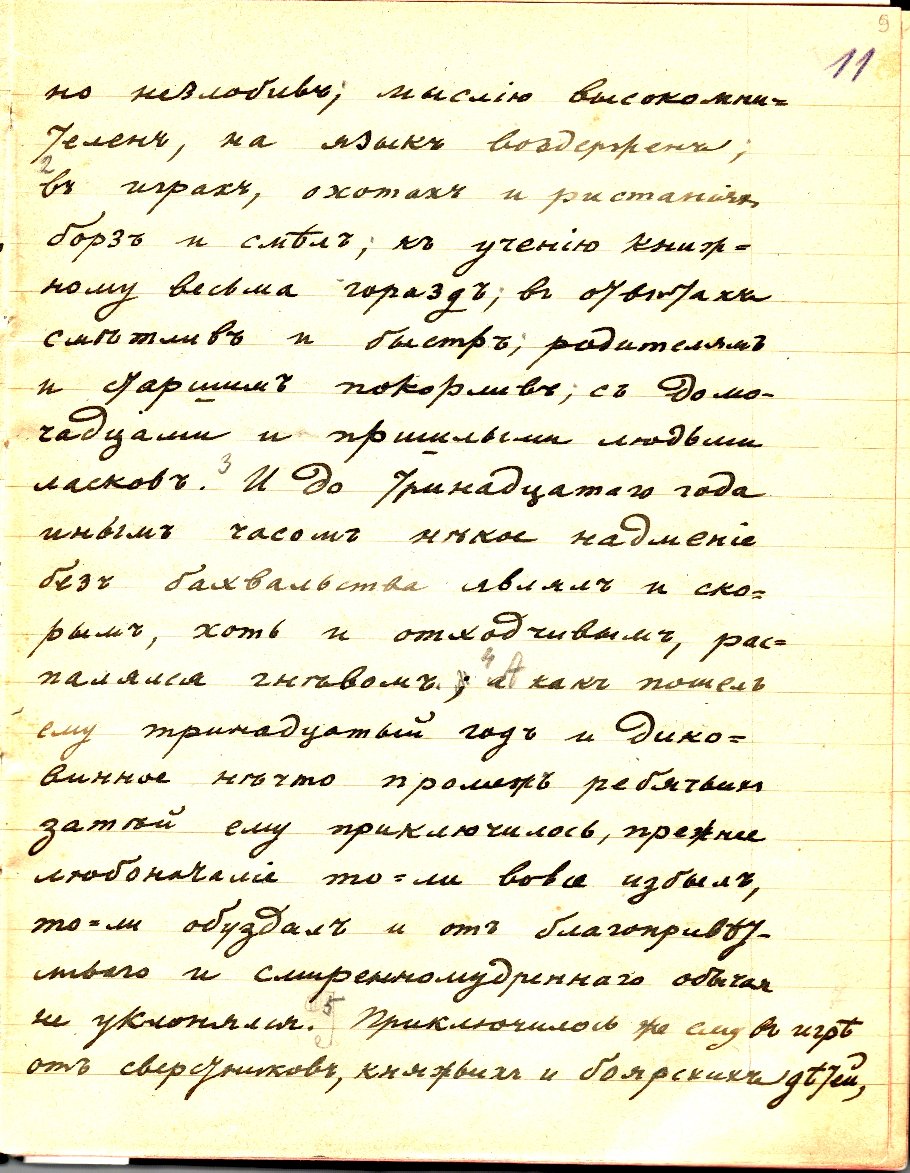 9
11
но незлобивъ; мыслію высокомни=
теленъ, на языкъ воздерженъ;
2
въ играхъ, охотахъ и ристаніяхъ
борзъ и смѣлъ; къ ученію книж=
ному весьма гораздъ; въ отвѣтахъ
смѣтливъ и быстръ; родителямъ
и старшимъ покорливъ; съ домо-
чадцами и пришлыми людьми
ласковъ. 3 И до тринадцатаго года
инымъ часомъ нѣкое надменіе
безъ бахвальства являлъ и ско=
рымъ, хоть и отходчивымъ, рас=
палялся гнѣвомъ; 4 а какъ пошелъ
ему тринадцатый годъ и дико=
винное нѣчто промежъ ребячьихъ
затѣй ему приключилось, прежнее
любоначаліе то=ли вовсе избылъ,
то=ли обуздалъ и отъ благопривѣт-
ливаго и смиренномудреннаго обычая
не уклонялся. 5 Приключилось же ему въ игрѣ
отъ сверстниковъ, княжьихъ и боярскихъ дѣтей,